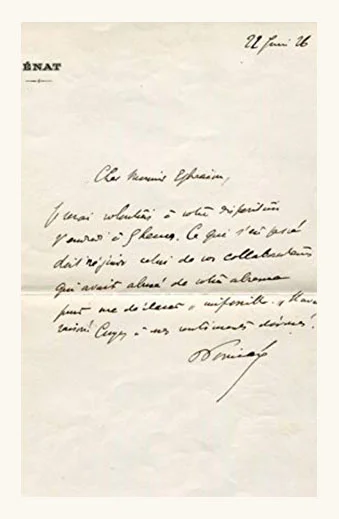 22 Juin 26
ÉNAT
Cher Monsieur Ephraïm,
Je serai volontiers à votre disposition
Vendredi à 5 heures. Ce que s'est passé
doit réjouir celui de vos collaborateurs
qui avait abusé de votre absence
pour me déclarer "impossible".
raison! Croyez à mes sentiments dévoués!